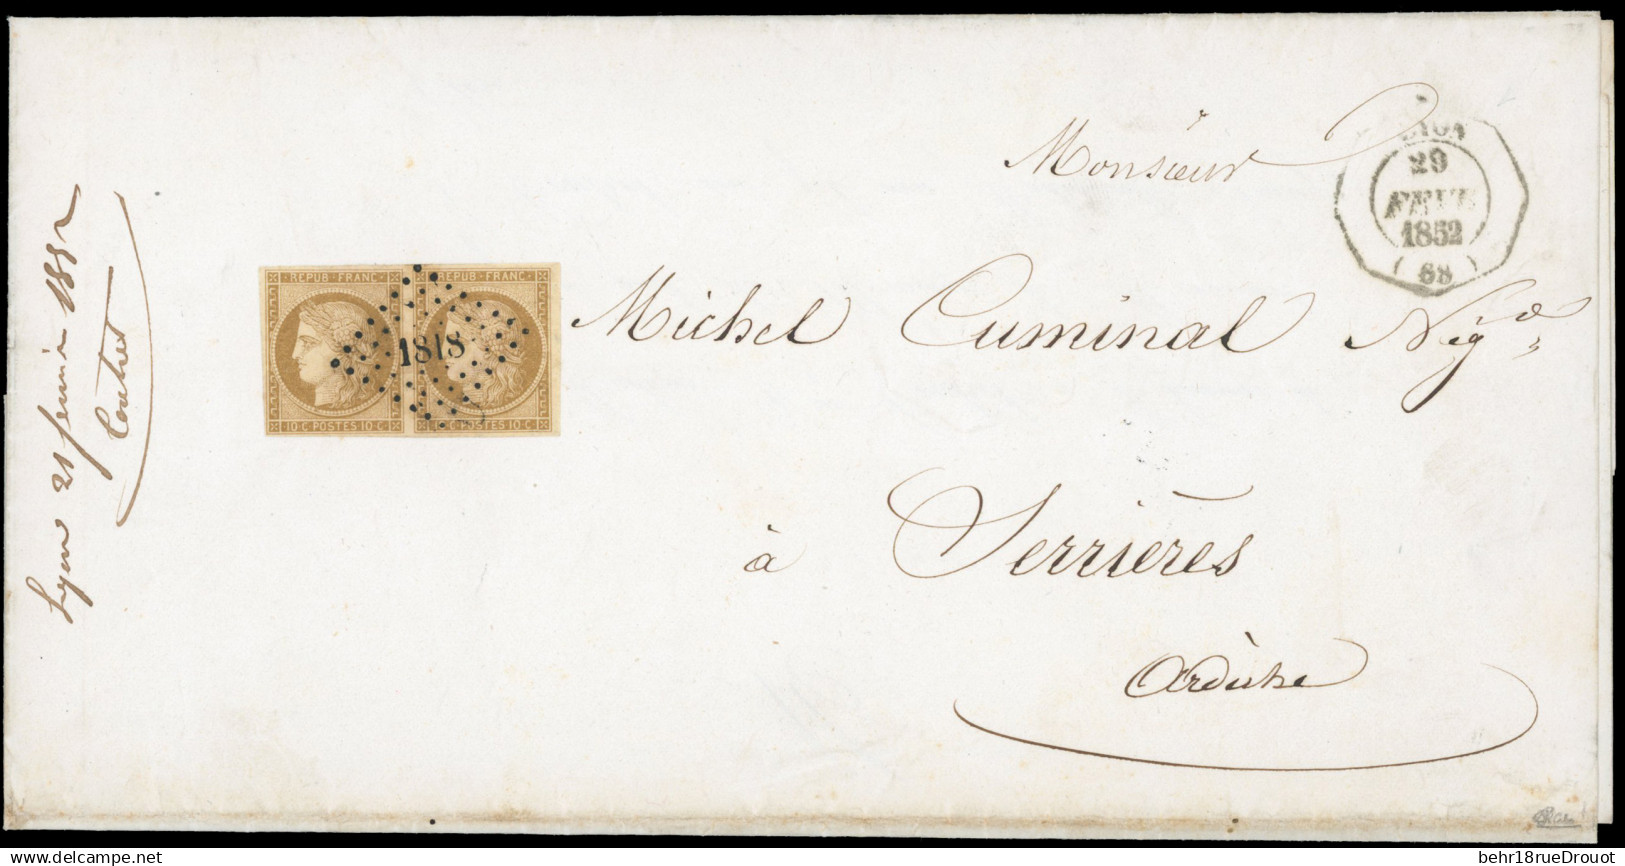 Monsieur
LYON
29
FEVR
1852
( 68 )
REPUB · FRANC
REPUB · FRANC
1818
10·C POSTES 10·C
10·C POSTES 10·C
Michel Cuminal Nég
à Serrières
Ardèche
Lyon 21 1852
behr18rueDrouot